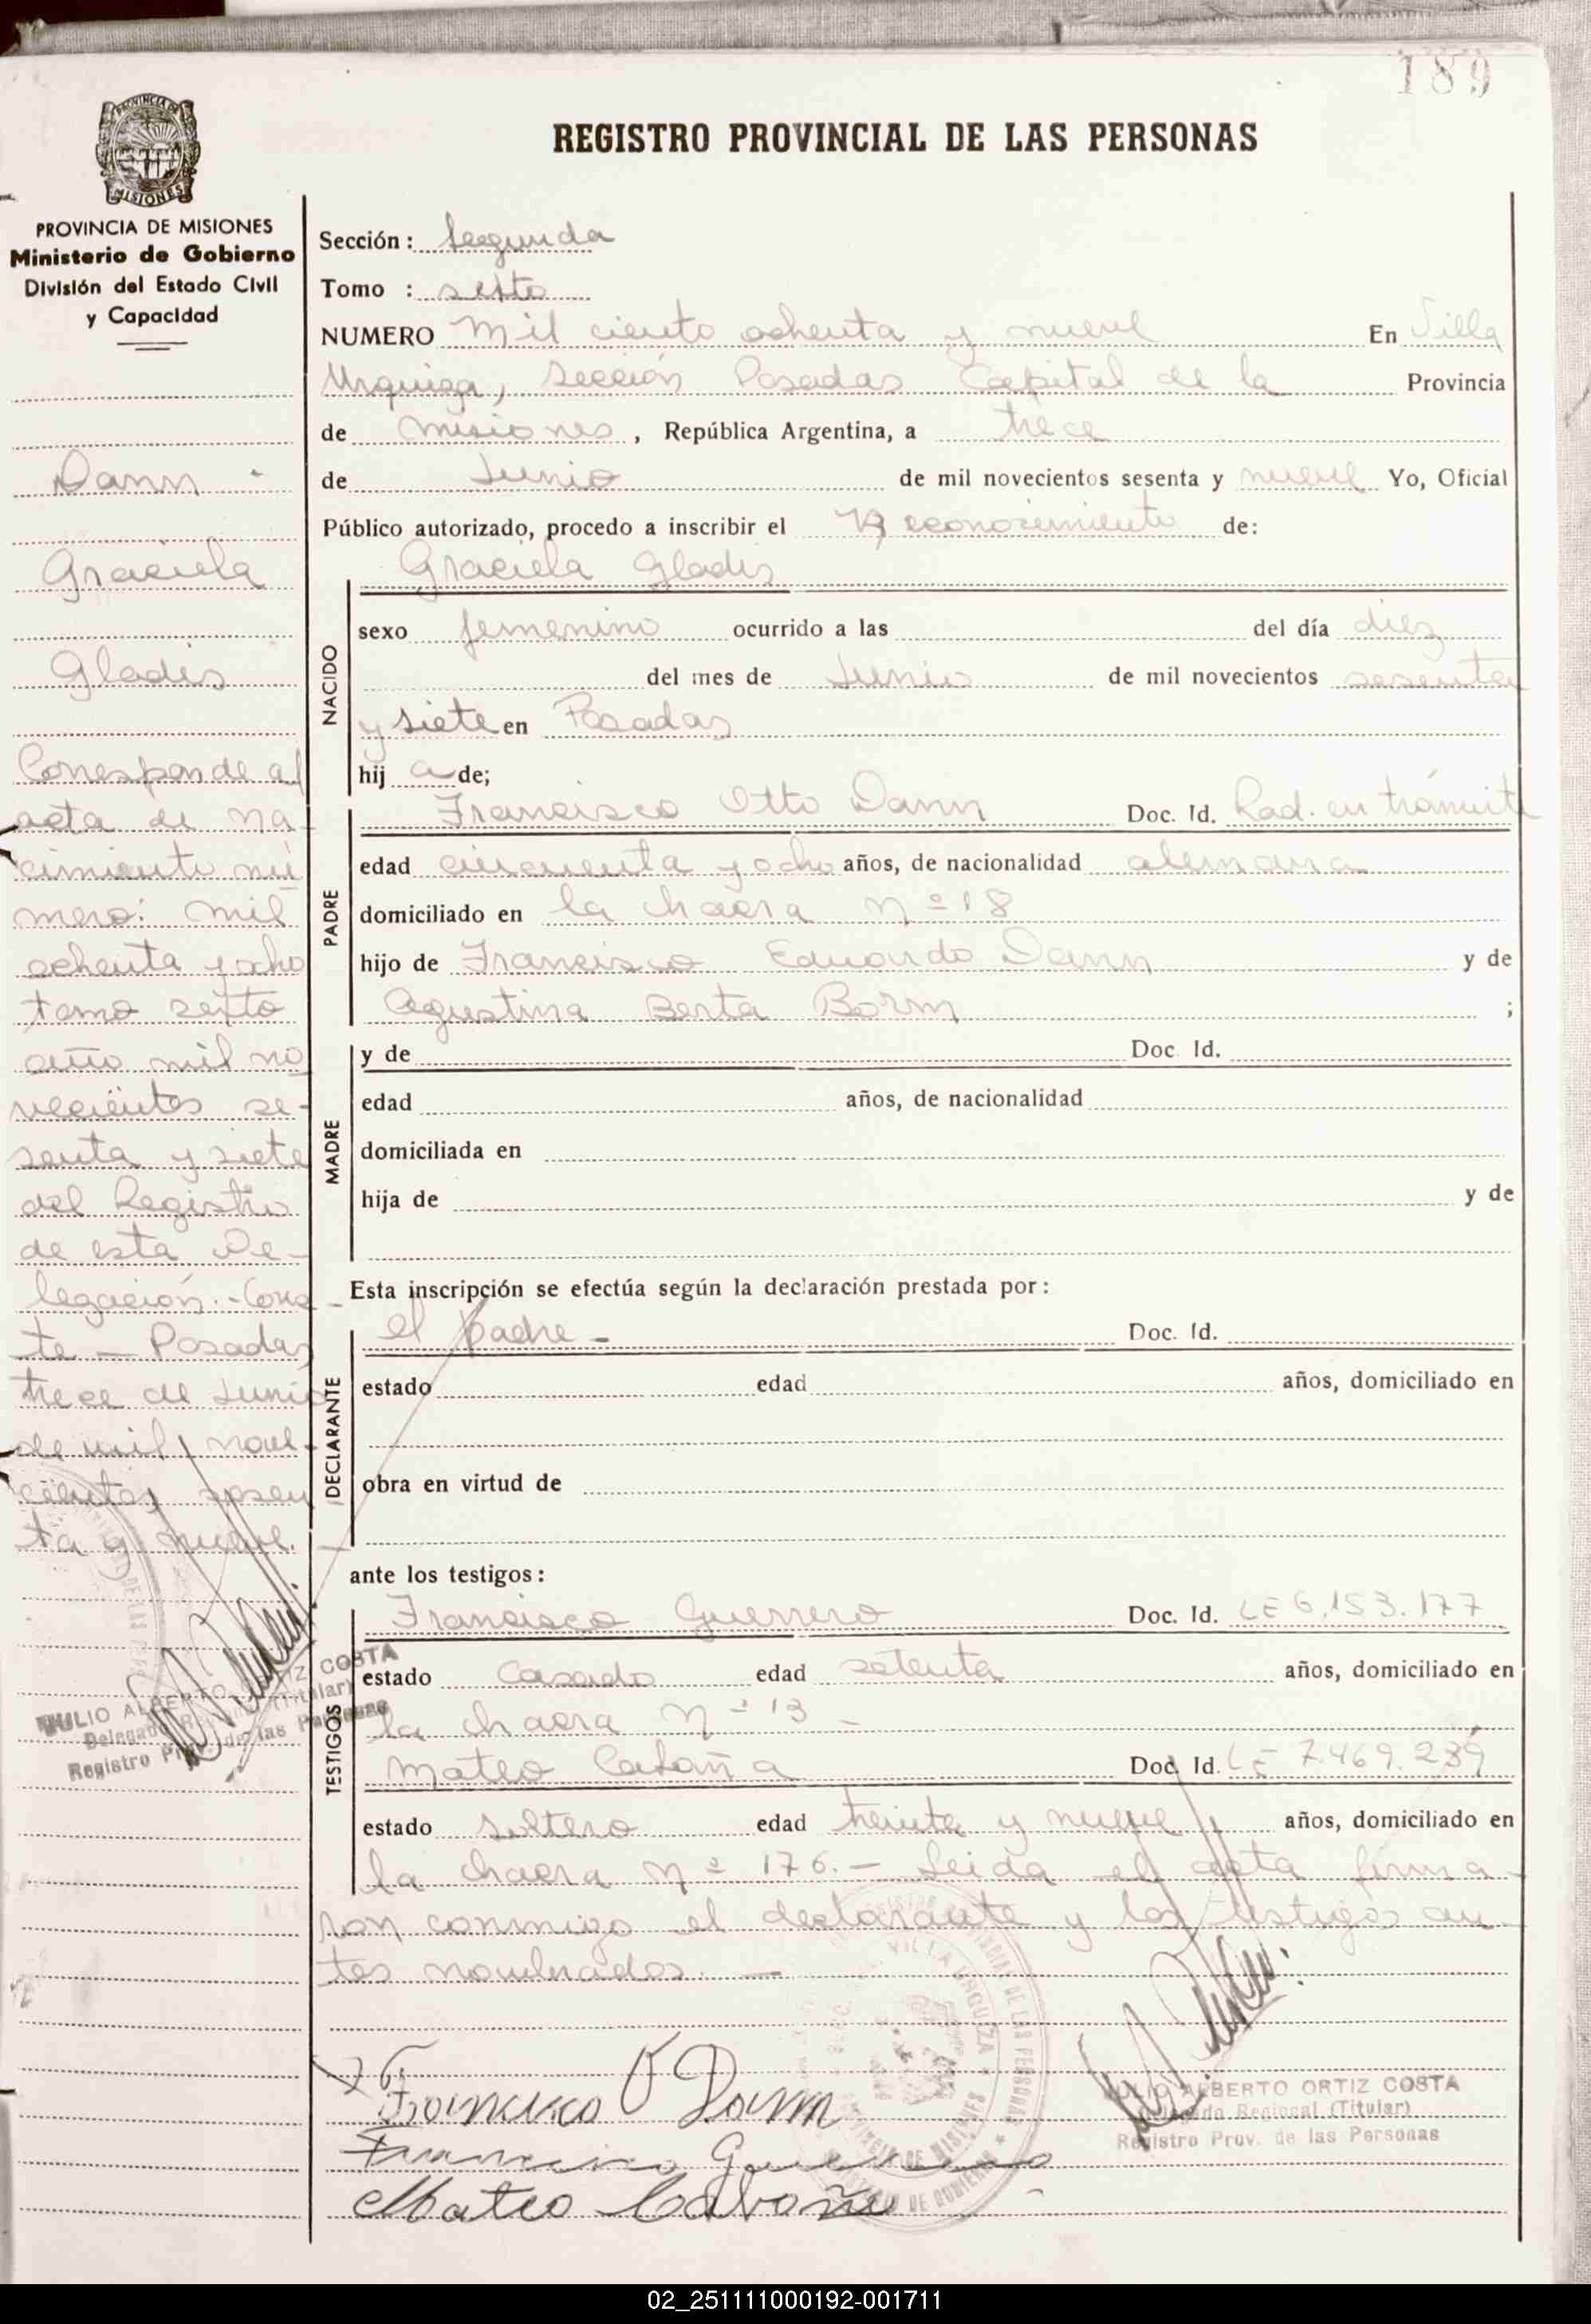 189
REGISTRO PROVINCIAL DE LAS PERSONAS
PROVINCIA DE MISIONES
MISIONES
PROVINCIA DE MISIONES
Ministerio de Gobierno
División del Estado Civil
y Capacidad
Dann -
Graciela
Gladis
Corresponde al
acta de na-
cimiento nú
mero: mil
ochenta y ocho
tomo sexto
año mil no
vecientos se-
senta y siete
del Registro
de esta De-
legación.- Cons-
te - Posadas
trece de Junio
de mil nove-
cientos sesen
ta y nueve.
JULIO ALBERTO ORTIZ COSTA
Delegado Regional (Titular)
Registro Prov. de las Personas
Sección: Segunda
Tomo : sexto
NUMERO Mil ciento ochenta y nueve En Villa
Urquiza, Sección Posadas Capital de la Provincia
de Misiones, República Argentina, a trece
de Junio de mil novecientos sesenta y nueve Yo, Oficial
Público autorizado, procedo a inscribir el Reconocimiento de:
NACIDO
Graciela Gladis
sexo femenino ocurrido a las del día diez
del mes de Junio de mil novecientos sesenta
y siete en Posadas
hij a de;
PADRE
Francisco Otto Dann Doc. Id. Rad. en trámite
edad cincuenta y ocho años, de nacionalidad alemana
domiciliado en la chacra nº 18
hijo de Francisco Eduardo Dann y de
Agustina Berta Borm ;
MADRE
y de Doc. Id.
edad años, de nacionalidad
domiciliada en
hija de y de
Esta inscripción se efectúa según la declaración prestada por:
DECLARANTE
el padre - Doc. Id.
estado edad años, domiciliado en
obra en virtud de
ante los testigos:
TESTIGOS
Francisco Guerrero Doc. Id. LE 6.153.177
estado Casado edad setenta años, domiciliado en
la chacra nº 13 -
Mateo Doc. Id. LE 7.469.239
estado soltero edad treinta y nueve años, domiciliado en
la chacra nº 176.- Leida el acta firma-
ron conmigo el declarante y los testigos an-
tes nombrados. -
Francisco O Dann
Francisco Guerrero
Mateo
VILLA URQUIZA
JULIO ALBERTO ORTIZ COSTA
Delegado Regional (Titular)
Registro Prov. de las Personas
02_251111000192-001711